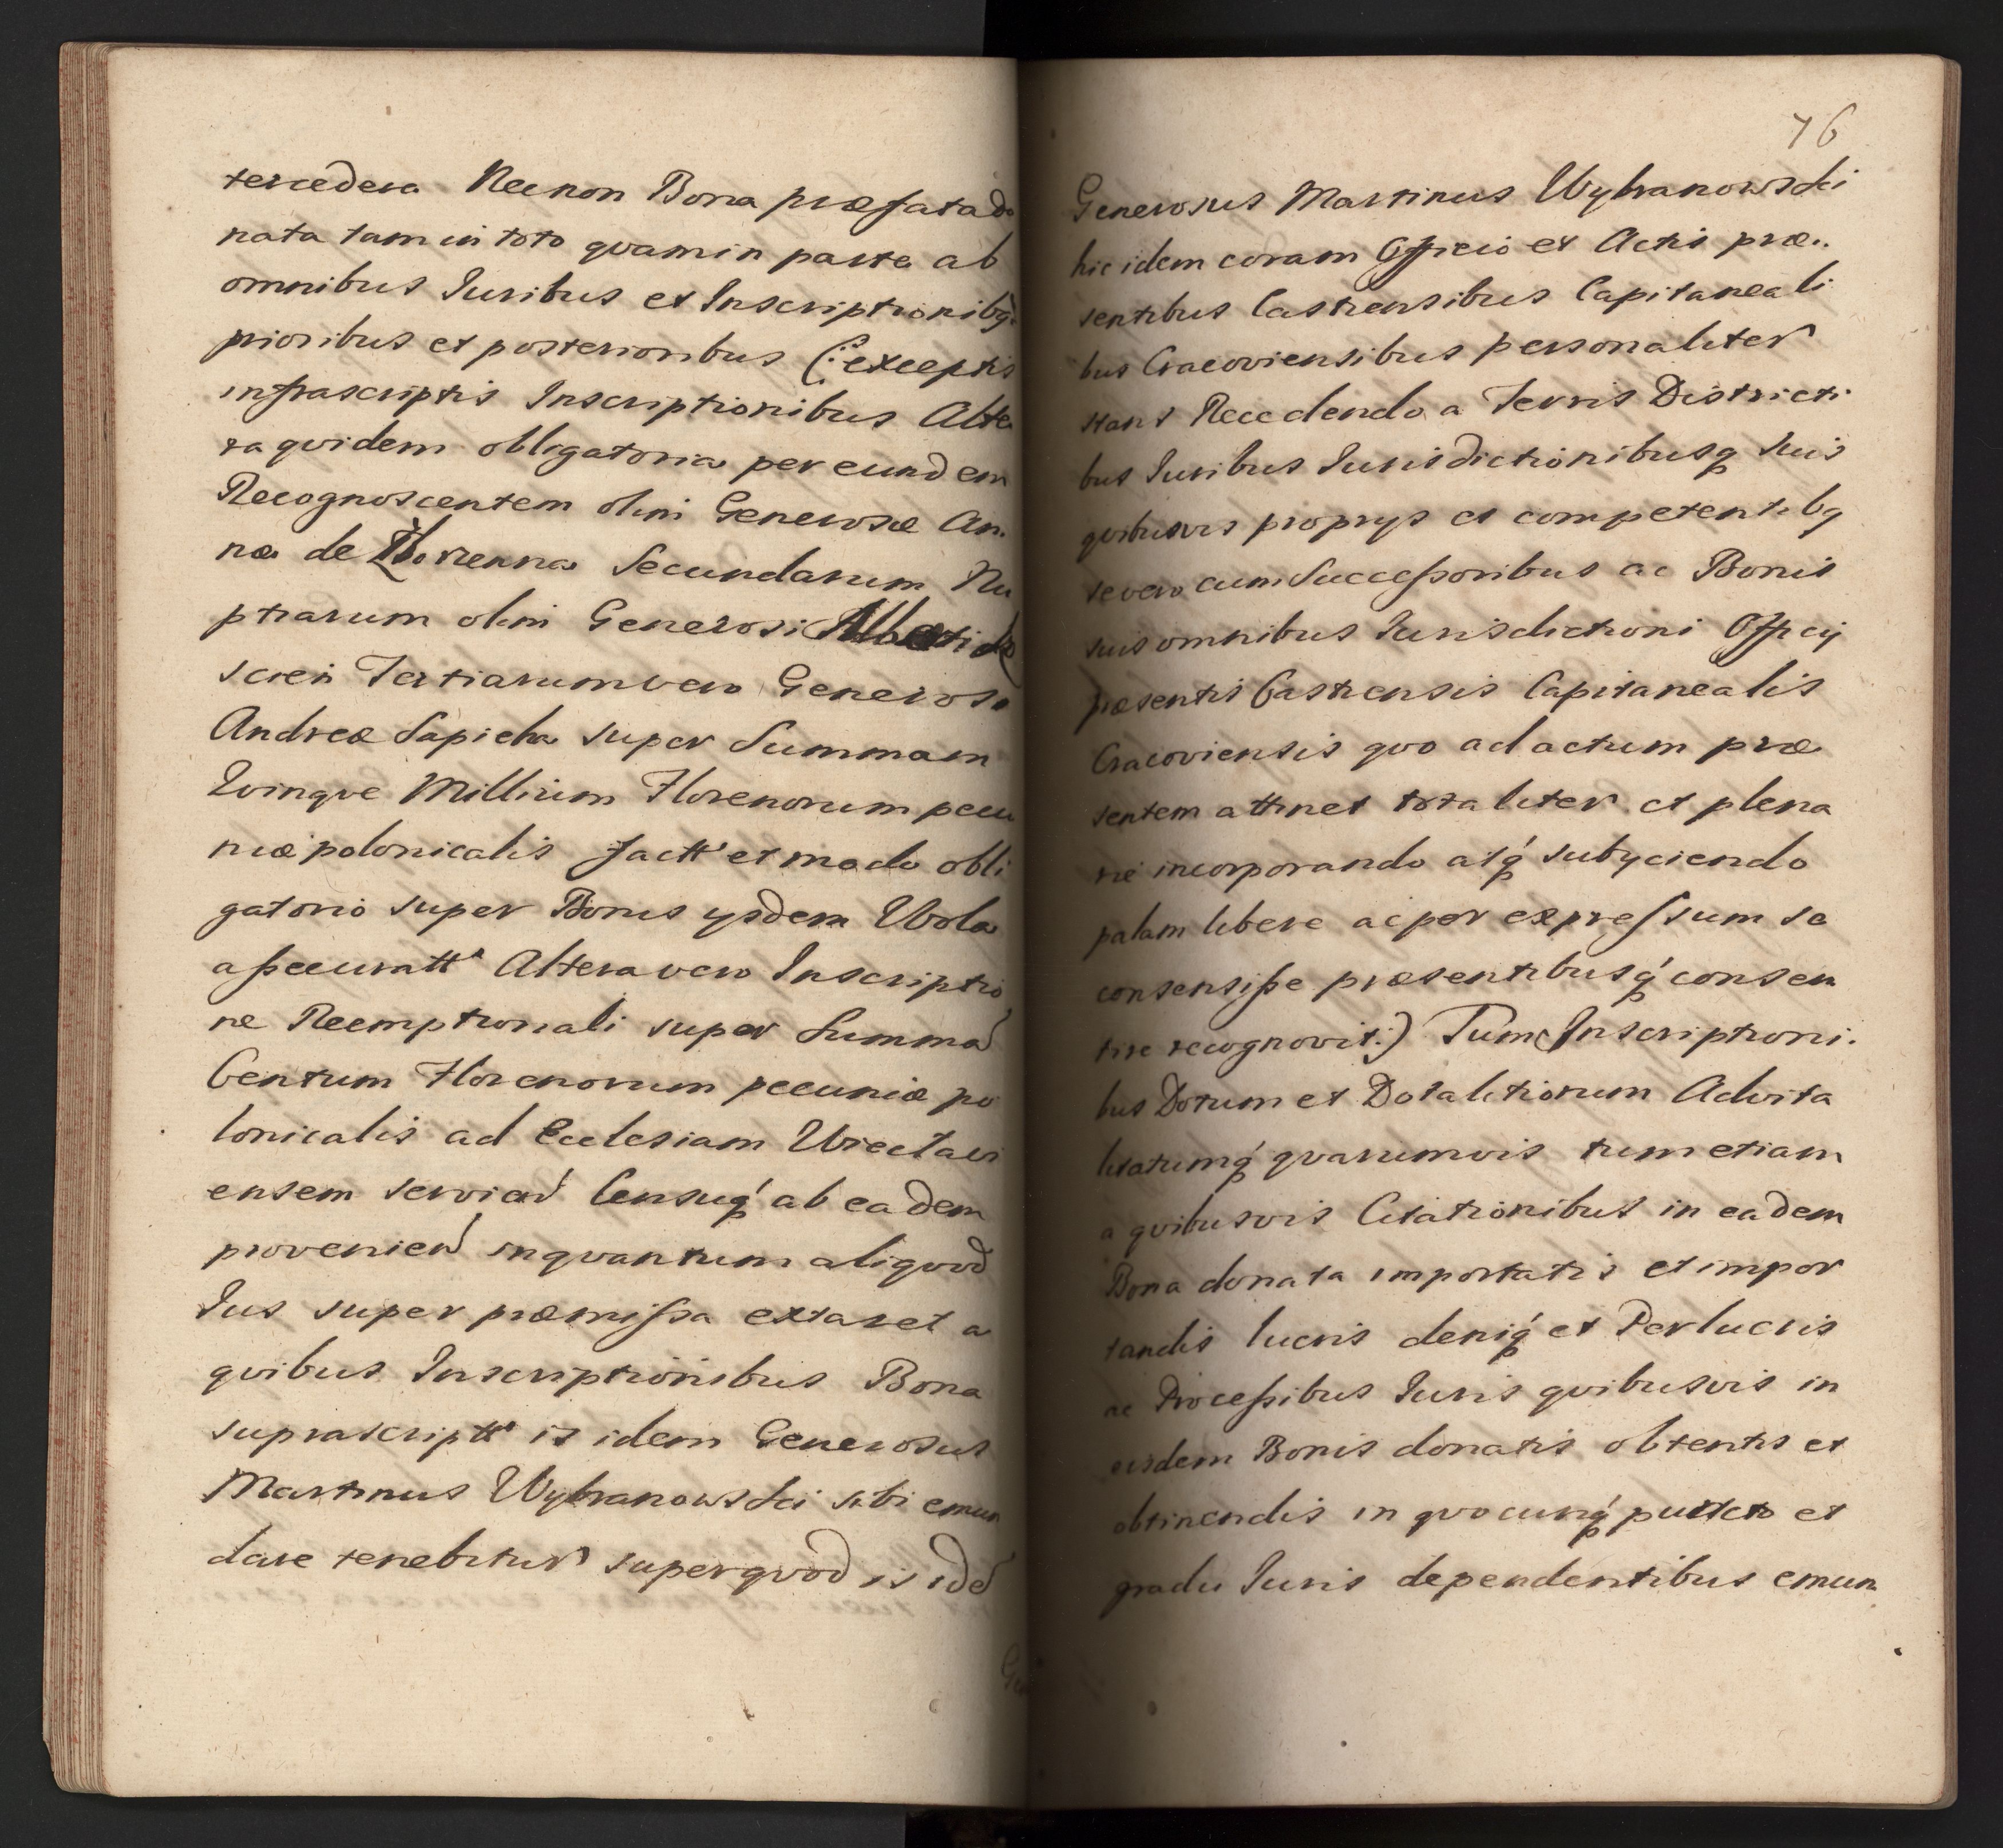 tercedera Necnon Bona præfata do
nata tam in toto qvam in parte ab
omnibus Juribus et Inscriptionibq
prioribus et posterioribus (: exceptis
infrascriptis Inscriptionibus Alte
ra qvidem obligatoria per eundem
Recognoscentem olim Generosæ An.
næ de Secundarum Nu
ptiarum olim Generosi Alberti
scien Tertiarum vero Generosi
Andreæ Sapieha super Summam
Qvinqve Millium Florenorum pecu
niæ polonicalis factt' et modo obli
gatorio super Bonis ysdem Wola
assecuratt' Altera vero Inscriptio
ne Reemptionali super Summa
Centum Florenorum pecuniæ po
lonicalis ad Ecclesiam
ensem servien Censuq' ab eadem
provenien inqvantum aliqvod
Jus super præmissa extaret a
qvibus Inscriptionibus Bona
suprascriptt' is idem Generosus
Martinus Wybranowski sibi emun
dare tenebitur superqvod is ide
76
Generosus Martinus Wybranowski
hic idem coram Officio et Actis præ..
sentibus Castrensibus Capitaneali
bus Cracoviensibus personaliter
stans Recedendo a Terris Districti
bus Juribus Jurisdictionibusq suis
qvibusvis proprys et competentibq
se vero cum Successoribus ac Bonis
suis omnibus Jurisdictioni Officy
præsentis Castrensis Capitanealis
Cracoviensis qvo ad actum præ
sentem attinet totaliter et plena
rie incorporando atq' subyciendo
palam libere ac per expressum se
consensisse præsentibusq' consen
tire recognovit:) Tum Inscriptioni.
bus Dotum et Dotalitiorum Advita
litatumq' qvarumvis tum etiam
a qvibusvis Citationibus in eadem
Bona donata importatis et impor
tandis lucris deniq' et Perlucris
ac Processibus Juris qvibusvis in
eisdem Bonis donatis obtentis et
obtinendis in qvocunq' puncto et
gradu Juris dependentibus emun